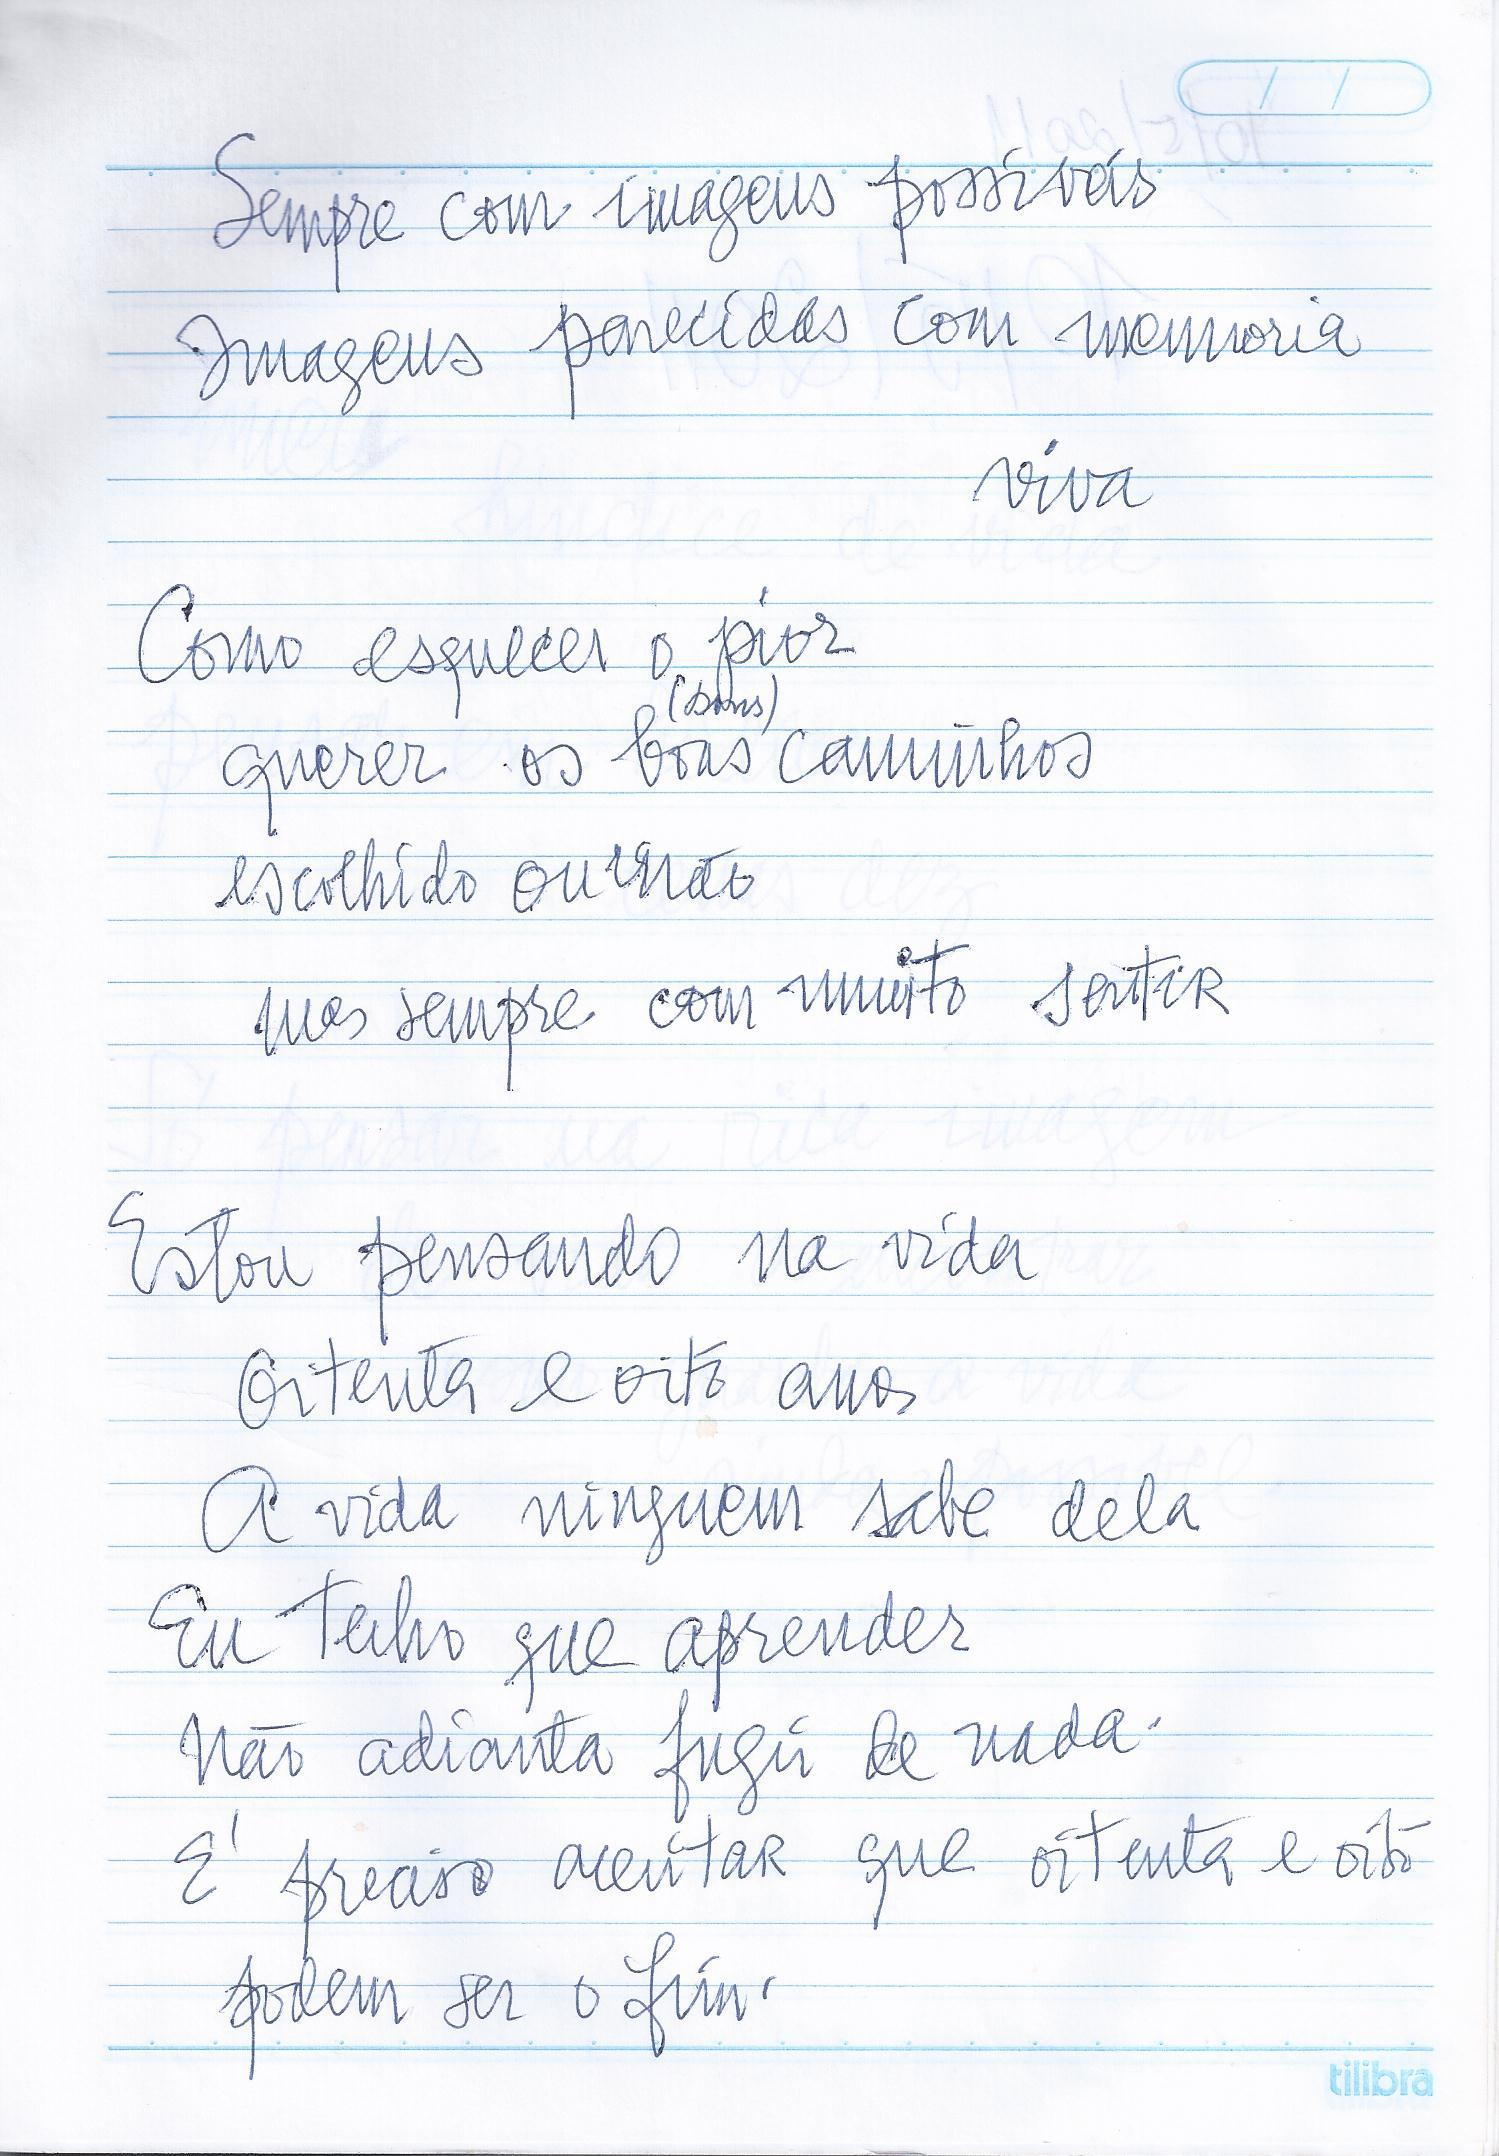 Sempre com imagens possiveis
Imagens parecidas com memoria
viva
Como esquecer o pior
(bons)
querer os boas caminhos
escolhido ou não
mas sempre com muito sentir
Estou pensando na vida
Oitenta e oito anos
A vida ninguem sabe dela
Eu tenho que aprender
Não adianta fugir de nada.
É preciso aceitar que oitenta e oito
podem ser o fim.
tilibra